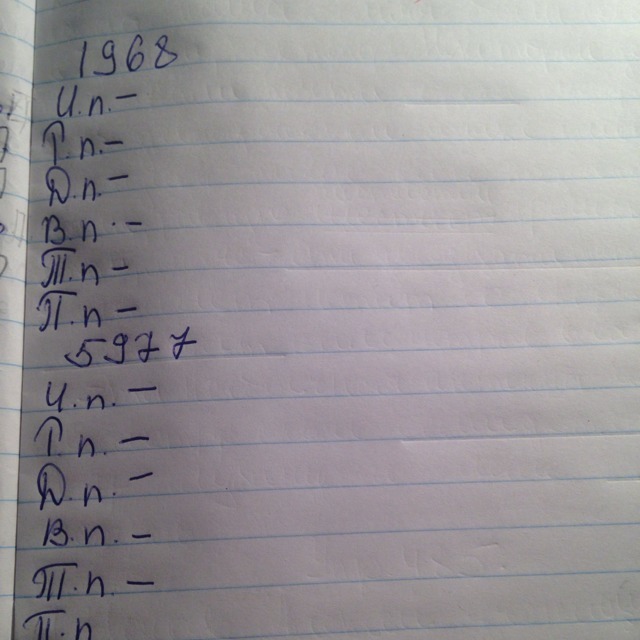 1968
И.п –
Р.п –
Д.п –
В.п –
Т.п –
П.п –
5927
И.п –
Р.п –
Д.п –
В.п –
Т.п –
П.п